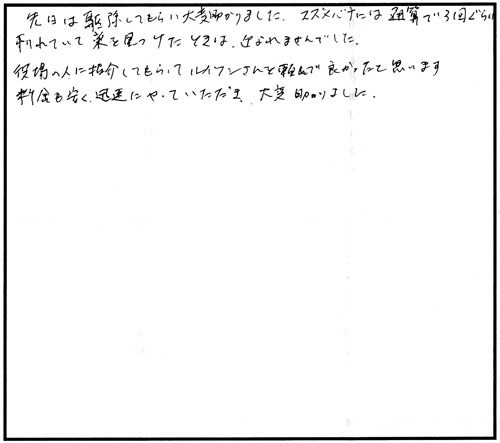 先日は駆除してもらい大変助かりました。スズメバチには通算で3回ぐらい
刺れていて巣を見つけたときは、近よれませんでした。
役場の人に紹介してもらってルイワンさんを頼んで良かったと思います
料金も安く、迅速にやっていただき、大変助かりました。